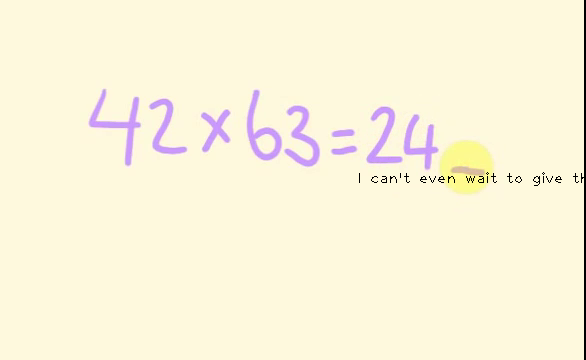 42×63=24_
I can't even wait to give th